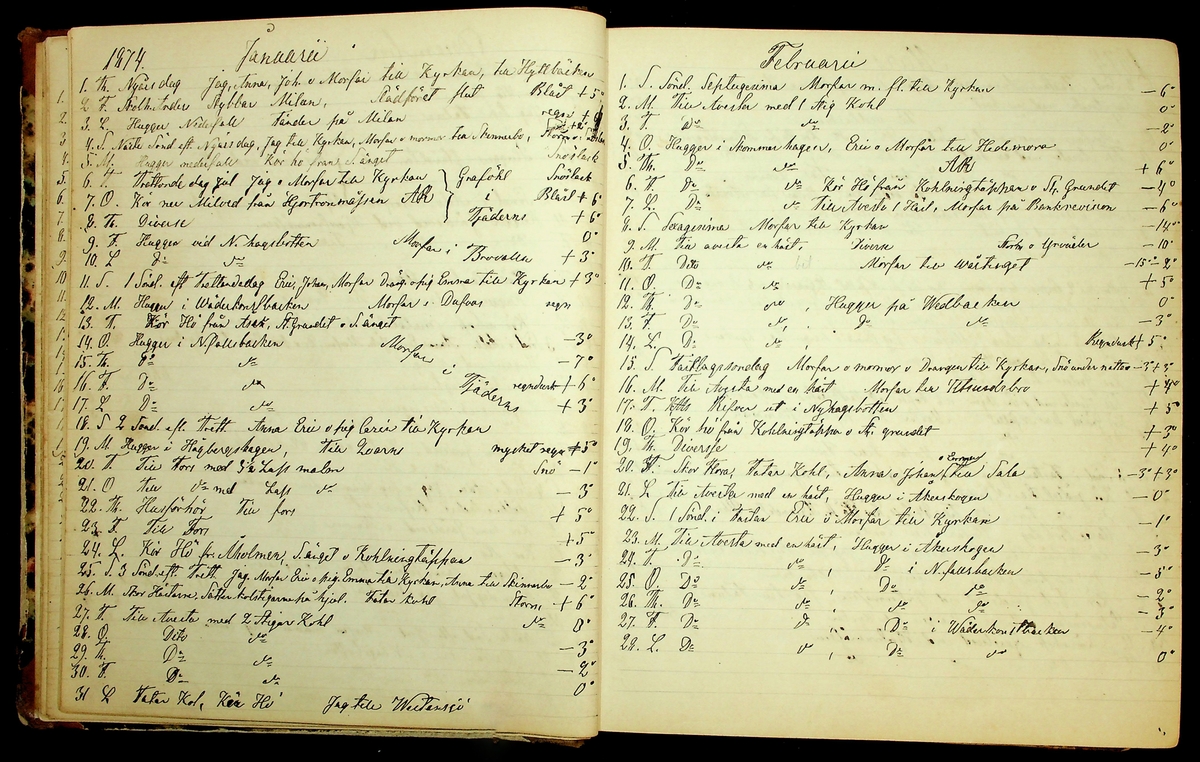 1874. Januarii
1. Th. Nyårsdag Jag, Anna, Joh. o Morfar till Kyrkan, till Hyttbäcken Blåst + 5°
2. F. Milan, flut
3. L Hugger tänder på Milan regn
4. S. Nyårsdag, Jag till Kyrkan, Morfar o mormor till Skinnerbo, Storm
5. M. Hugger nederfall Kör hö från Länget Snöslask
6. T. Trettonde dag Jul Jag o Morfar till Kyrkan Snöslask
7. O. Kör ner Milved från Hjortronmåssan AR Blåst + 6°
8. Th. Diverse + 6°
Grafökl i Tjäderns
9. F. Hugger vid N. hagsbotten 0°
10. L D:o d:o Morfar i Brovallen + 3°
11. S. 1 Sönd. eft Trettondedag Eric, Johan, Morfar o pig Emma till Kyrkan + 3°
12. M. Hugger i Wäderkonstbacken Morfar i Dufvos regn
13. T. Kör Hö från Asak, St. Grundet o Länget
14. O. Hugger i N.fallsbacken – 3°
15. Th. D:o d:o – 7°
16. F. D:o d:o regndusk + 6°
17. L. D:o d:o + 3°
Morfar i Tjäderns
18. S 2 Sönd. eft Trett Anna Eric o pig Carin till Kyrkan
19. M. Hugger i Hägbergshagen, till Qvarn mycket regn + 5°
20. T. Till Fors med Lass malm Snö – 1°
21. O till d:o med Lass d:o – 3°
22. Th. Husförhör Till fors + 5°
23. F Till Fors + 5°
24. L. Kör Hö fr. Åholmen, Länget o Kohlningtäppan – 3°
25. S. 3 Sönd. eft. Trett Jag, Morfar Eric o pig Emma till Kyrkan, Anna till Skinnerbo – 2°
26. M. Skor Hästarne Sätter kolstigarna på hjul. Fatar kohl Storm + 6°
27. T Till Avesta med 2 Stigar Kohl d:o 0°
28. O. Dito d:o
29. Th. D:o d:o – 3°
30. F. D:o d:o – 2°
31 L Fatar Kol, Kör Hö Jag till 0°
Februarii
1. S. Sönd. Septugesima Morfar m. fl. till Kyrkan – 6°
2. M. Till Avesta med 1 stig Kohl 0°
3. T. D:o d:o – 2°
4. O. Hugger i Skommarhagen, Eric o Morfar till Hedemora 0°
5. Th. D:o d:o AR + 6°
6. F. D:o d:o Kör Hö från Kohlningtäppan o St. Grundet – 4°
7. L. D:o d:o till Avesta 1 Häst, Morfar på Bankrevision – 6°
8. S. Sexagesima Morfar till Kyrkan – 14°
9. M. till avesta en häst, diverse Storm o Yrväder – 10°
10. T. Dito d:o Morfar till Wårtinget – 15° – 2°
11. O. D:o d:o + 5°
12. Th. D:o d:o, Hugger på Wedbacken 0°
13. F. D:o d:o, d:o d:o – 3°
14. L. D:o d:o Regndusk + 5°
15. S. Fastlagssöndag Morfar o mormor o Drängen till Kyrkan, Snö under natten – 3° + 3°
16. M. Till Avesta med en häst Morfar till + 4°
17. T. Rifver ut i Nyhagsbotten + 5°
18. O. Kör hö från Kohlningtäppa o St. grundet + 3°
19. Th. Diverse + 4°
20. F. Skor Hora, Fatar Kohl, Anna o Johan o Emma till Sala – 3° + 3°
21. L Till Avesta med en häst, Hugger i Åkerskogen – 0°
22. S. 1 Sönd. i Fastan Eric o Morfar till Kyrkan – 1°
23. M. Till Avesta med en häst, Hugger i Åkerskogen – 3°
24. T. D:o d:o, D:o i N.fallsbacken – 5°
25. O. D:o d:o, D:o – 2°
26. Th. D:o d:o, D:o – 3°
27. F. D:o d:o, D:o i Wäderkonstbacken – 4°
28. L. D:o d:o, D:o d:o 0°